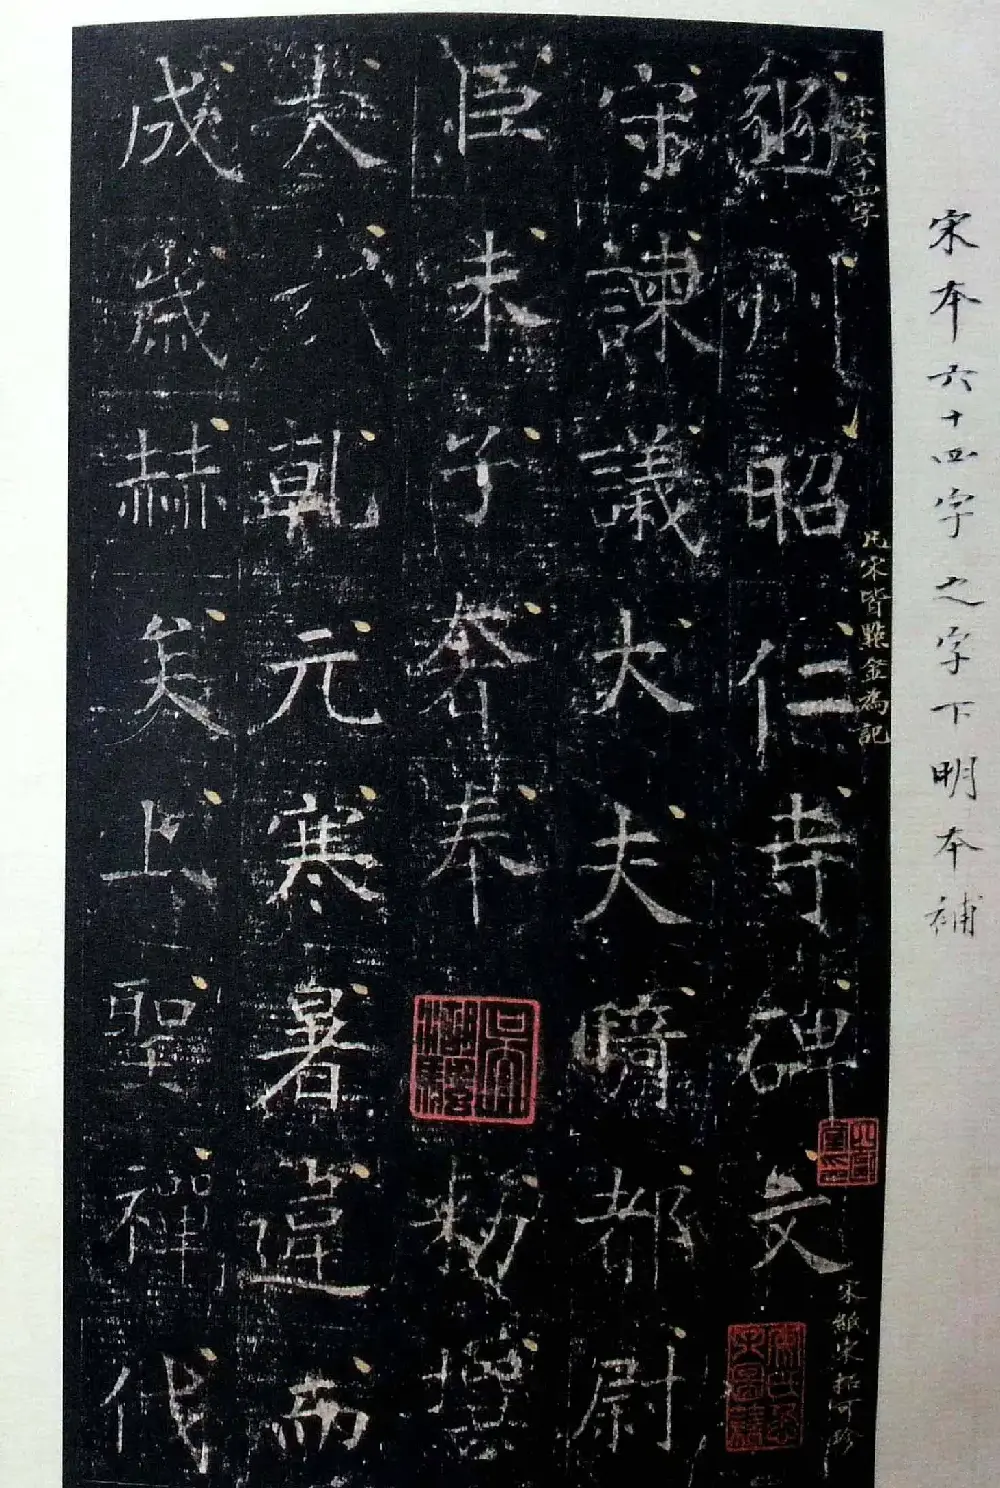 宋本六十四字之字下明本補
宋本六十四字
凡宋皆點金為記
宋紙宋拓可珍
豳州昭仁寺碑文
守諫議大夫騎都尉
臣朱子奢奉敕撰
大哉乾元寒暑違而
成歲赫矣上聖禪代